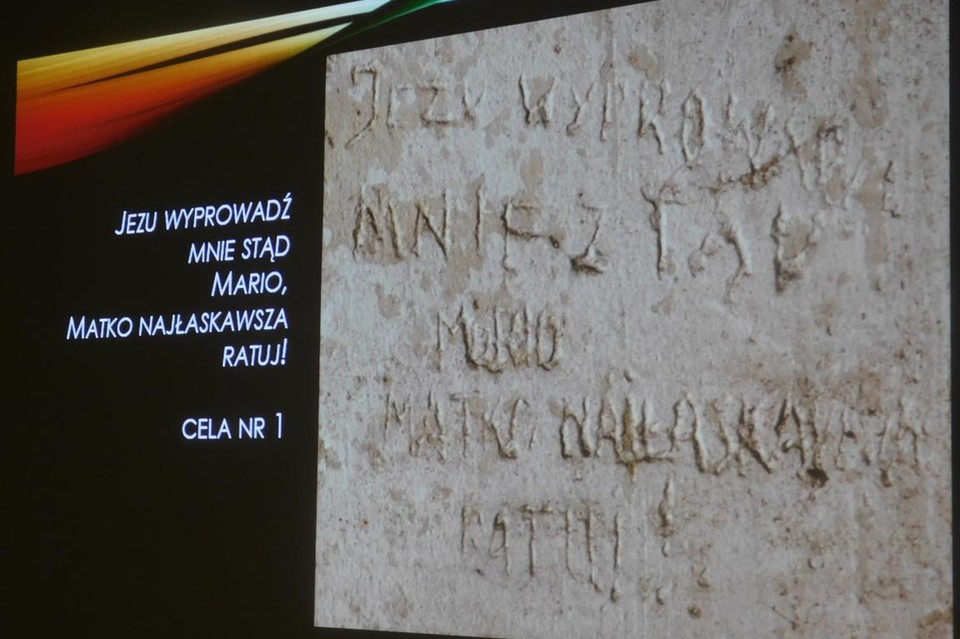 JEZU WYPROWADŹ
MNIE STĄD
MARIO,
MATKO NAJŁASKAWSZA
RATUJ!
CELA NR 1
JEZU WYPROWADZ
MNIE Z TĄD
MARIO
MATKO NAJŁASKAWSZA
RATUJ!